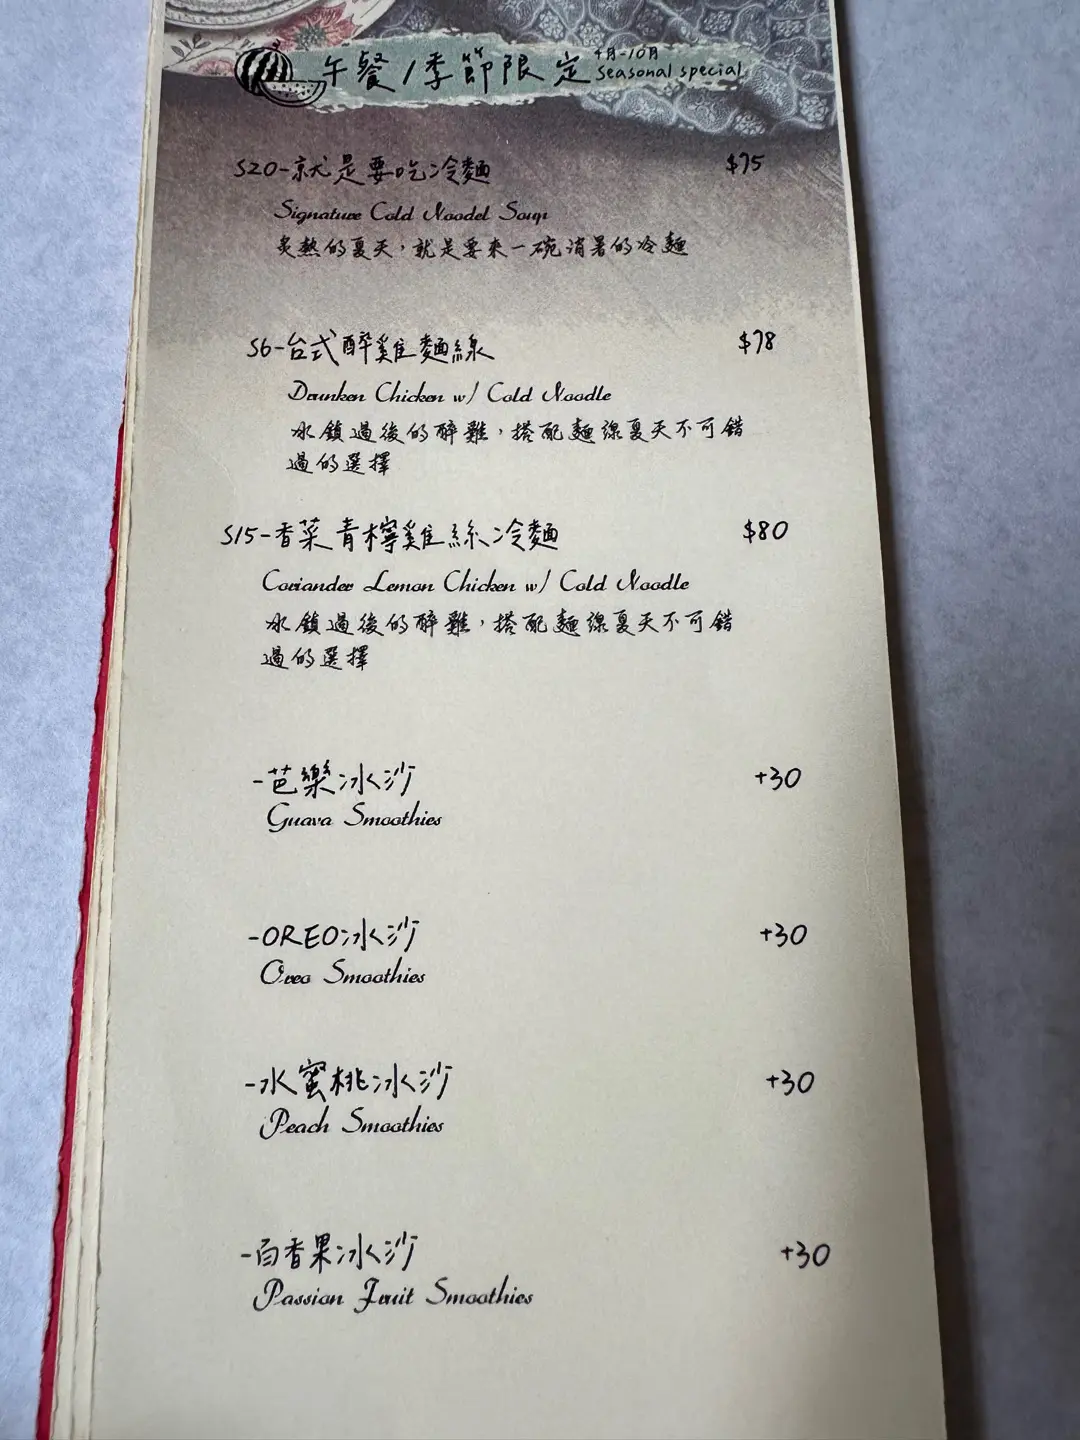 午餐/季節限定 4月-10月
Seasonal special
S20-就是要吃冷麵 $75
Signature Cold Noodel Soup
炙熱的夏天，就是要來一碗消暑的冷麵
S6-台式醉雞麵線 $78
Drunken Chicken w/ Cold Noodle
冰鎮過後的醉雞，搭配麵線夏天不可錯
過的選擇
S15-香菜青檸雞絲冷麵 $80
Coriander Lemon Chicken w/ Cold Noodle
冰鎮過後的醉雞，搭配麵線夏天不可錯
過的選擇
-芭樂冰沙 +30
Guava Smoothies
-OREO冰沙 +30
Oreo Smoothies
-水蜜桃冰沙 +30
Peach Smoothies
-百香果冰沙 +30
Passion Fruit Smoothies